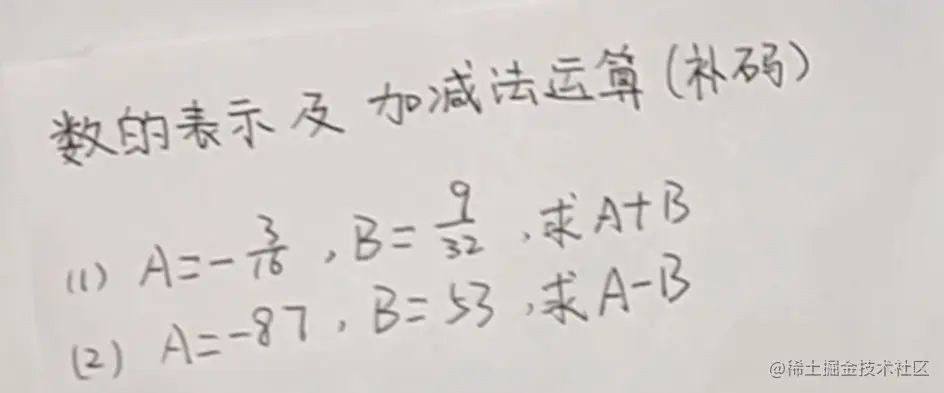 数的表示及 加减法运算(补码)
(1) A=-3/16, B=9/32, 求A+B
(2) A=-87, B=53, 求A-B
@稀土掘金技术社区